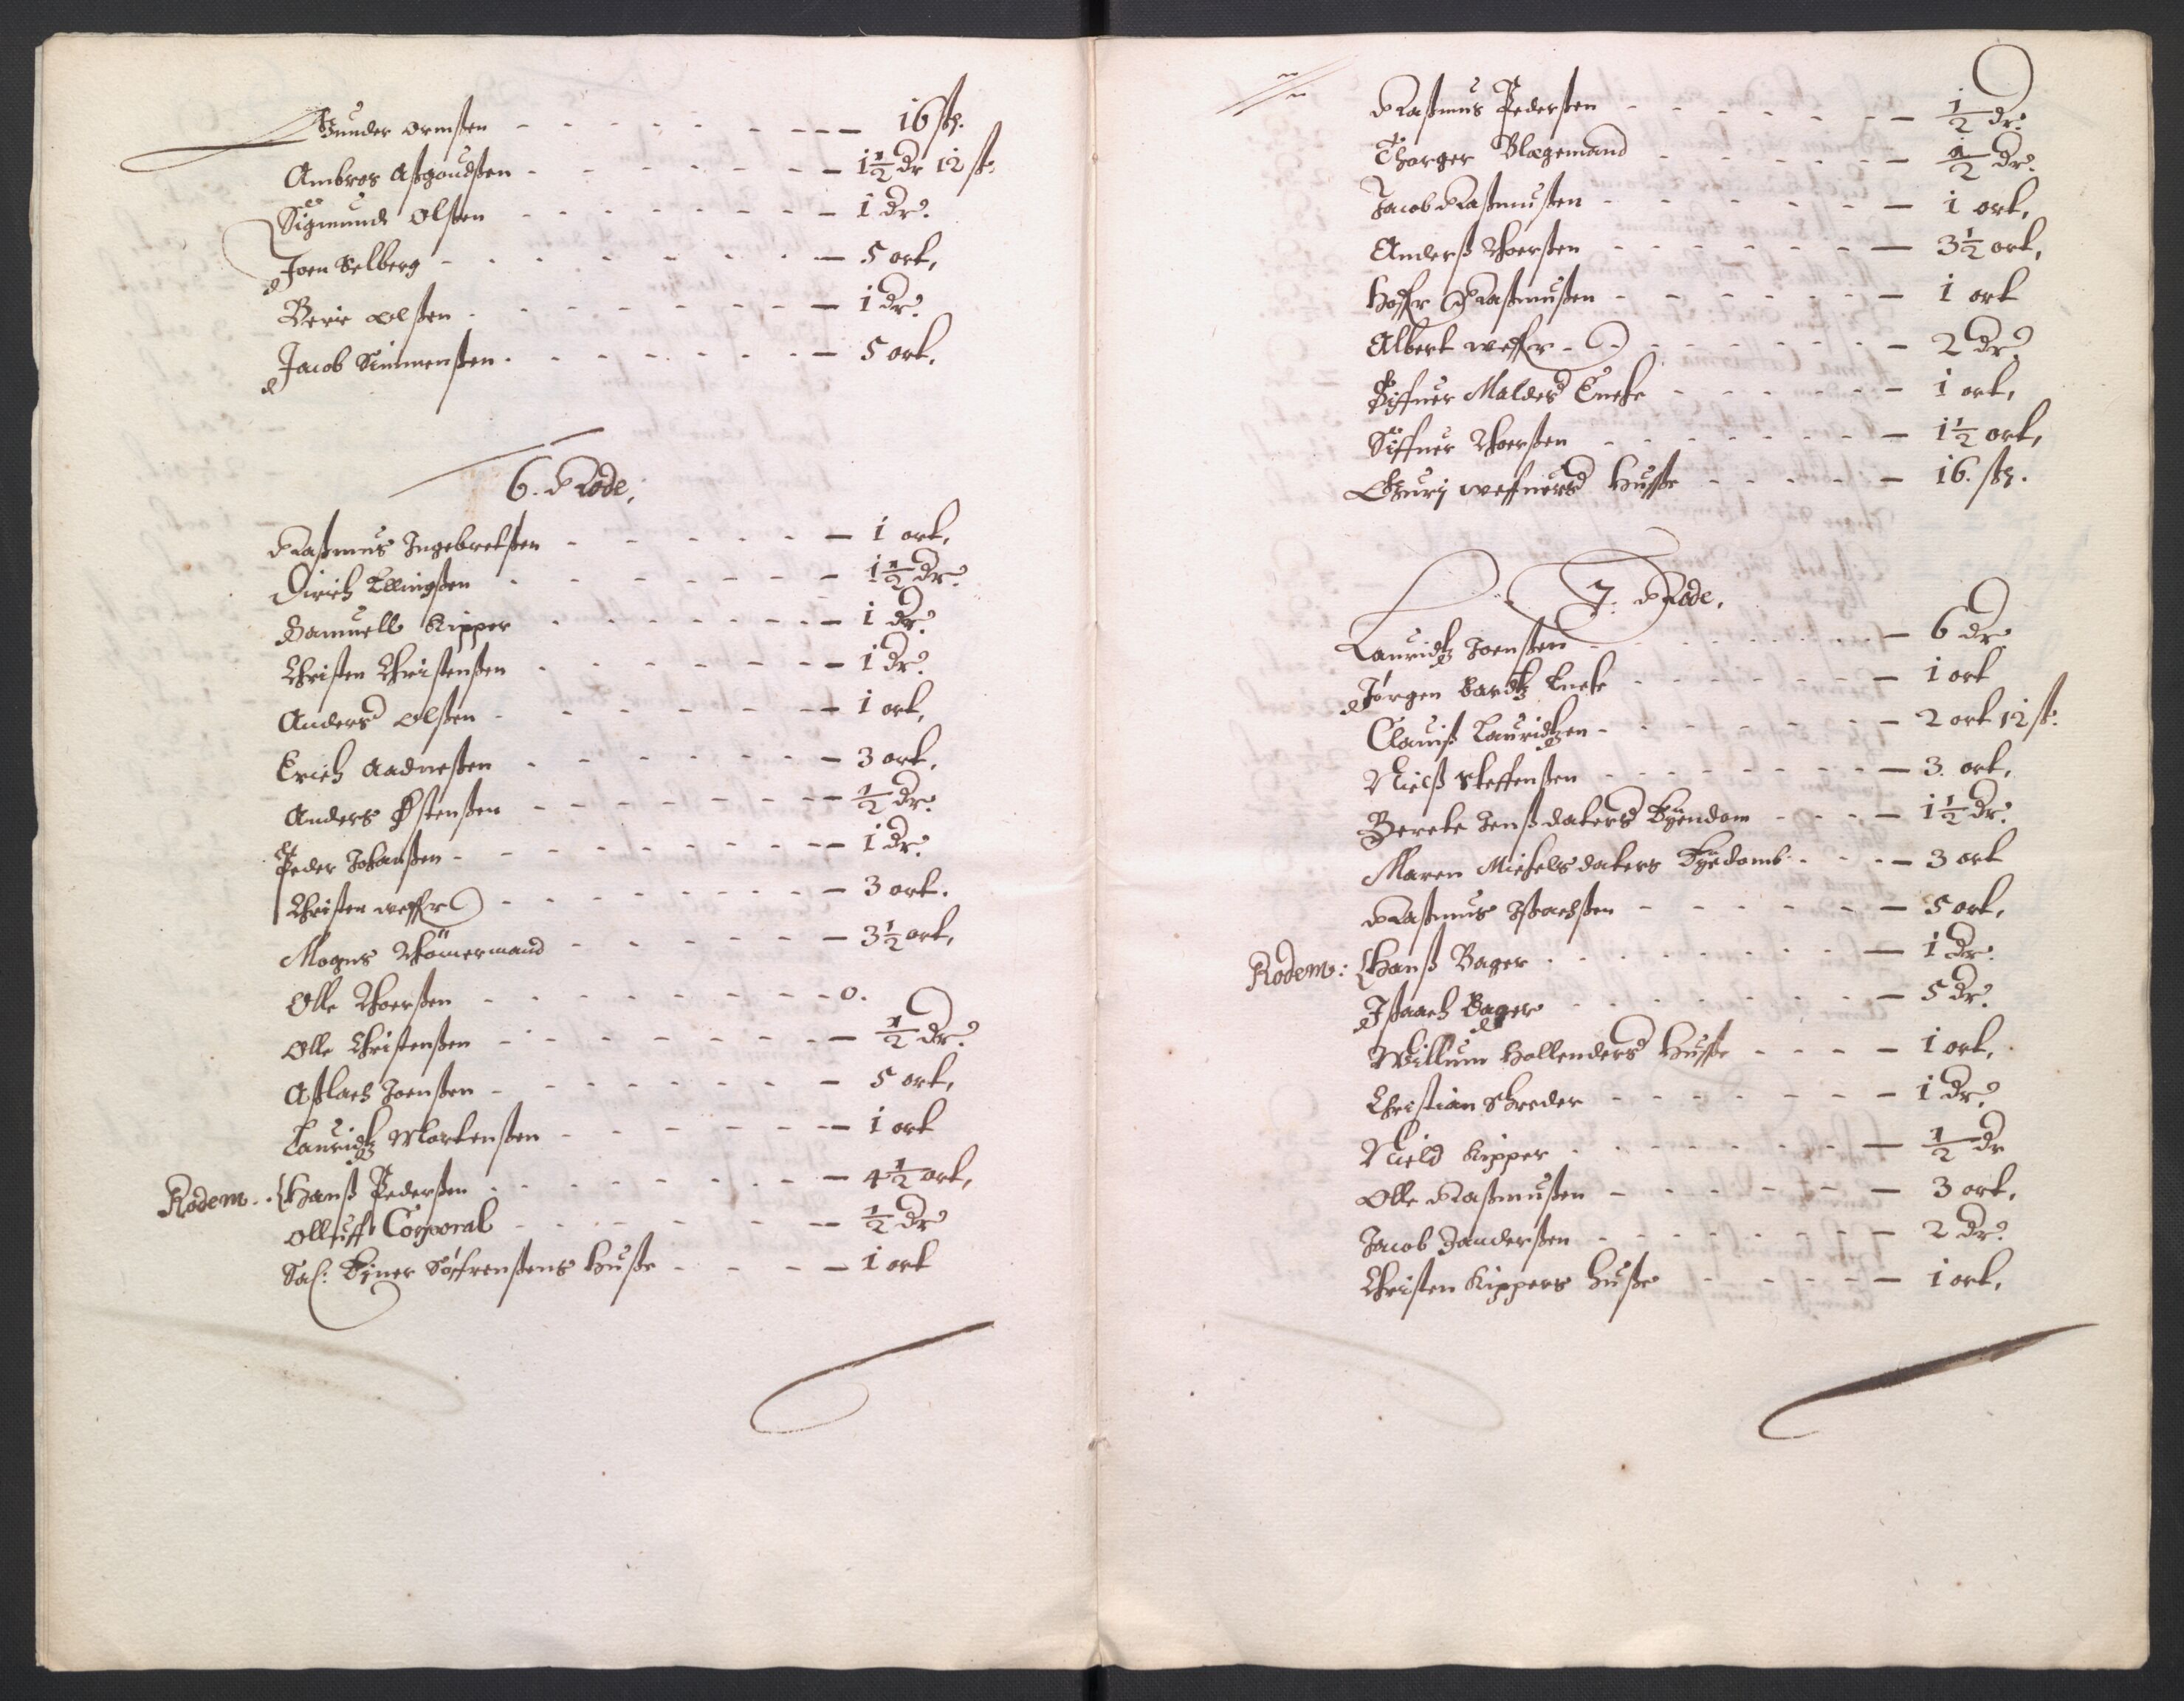 Gunder Ormßen - - - 16 sk.
Ambros Aßgoudßen - - - 1½ dr 12 sk:
Sigmund Olßen - - - 1 dr.
Joen Selberg - - - 5 ort,
Berir Olßen - - - 1 dr.
Jacob Simmenßen - - - 5 ort.
6. Rode,
Raßmus Ingebretßen - - - 1 ort,
Dirich Ellingßen - - - 1½ dr.
Samuell Kipper - - - 1 dr.
Christen Christenßen - - - 1 dr.
Anders Olßen - - - 1 ort,
Erich Aadneßen - - - 3 ort,
Anders Østenßen - - - ½ dr.
Peder Johanßen - - - 1 dr.
Christen weffer - - - 3 ort.
Mogns Thömermand - - - 3½ ort,
Olle Thoerßen - - - 0.
Olle Christenßen - - - ½ dr.
Aßlach Joenßen - - - 5 ort,
Lauridtz Mortenßen - - - 1 ort
Rodem. Hanß Pederßen - - - 4½ ort,
Olluff Corporal - - - ½ dr
Sal: Ejner Søffrenßens Huße - - - 1 ort
Raßmus Pederßen - - - ½ dr.
Thorger Blægemand - - - ½ dr.
Jacob Raßmußen - - - 1 ort,
Anderß Thoerßen - - - 3½ ort,
Raßmußen - - - 1 ort
Albert weffer - - - 2 dr.
Giffuer Malders Encke - - - 1 ort,
Siffuer Thoerßen - - - 1½ ort,
Guri weffuers Huße - - - 16. sk.
7. Rode.
Lauridtz Joenßen - - - 6 dr.
Jørgen Bardtz Encke - - - 1 ort
Clauiß Lauridtzen - - - 2 ort 12 sk:
Nielß Steffenßen - - - 3. ort,
Berete Jenßdaters Eyendom - - - 1½ dr.
Maren Michelsdaters Eyedomb - - - 3 ort
Raßmus Ißachßen - - - 5 ort,
Rodem: Hanß Bager - - - 1 dr.
Ißaach Bager - - - 5 dr.
Willum Hollenders Huße - - - 1 ort,
Christian Skreder - - - 1 dr.
Nield Kipper - - - ½ dr
Olle Raßmußen - - - 3 ort,
Jacob Sanderßen - - - 2 dr.
Christen Kippers Huße - - - 1 ort,